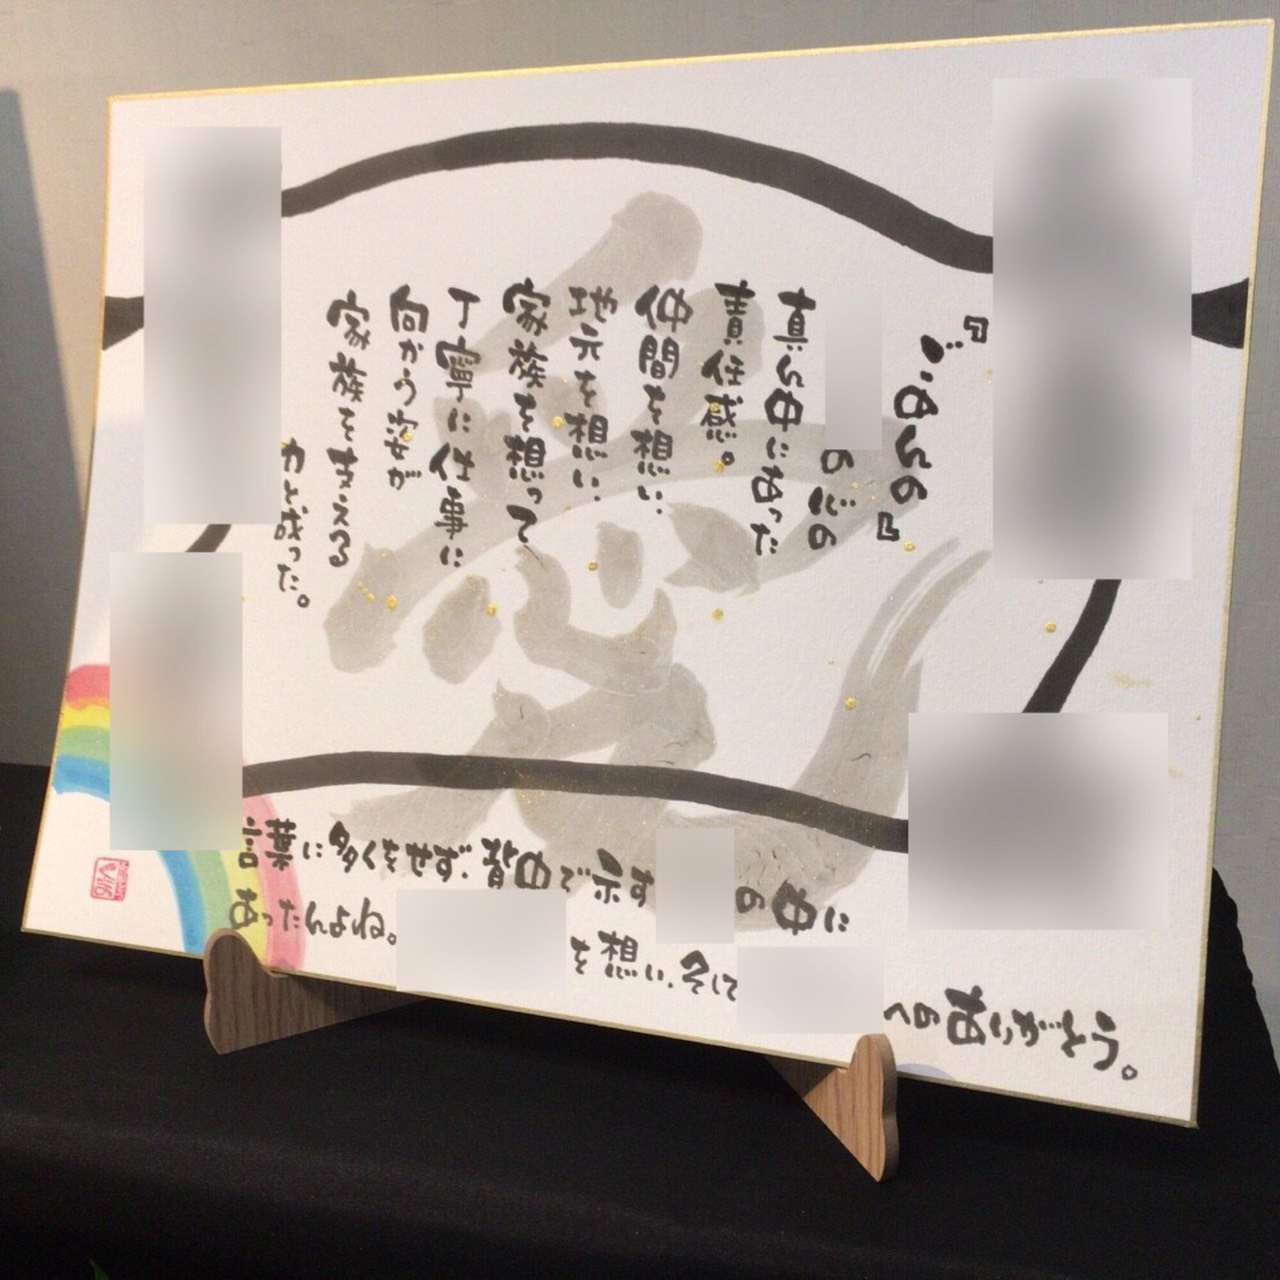 『ごめんの』
の心の
真ん中にあった
責任感。
仲間を想い、
地元を想い、
家族を想って
丁寧に仕事に
向かう姿が
家族を支える
力と成った。
言葉に多くをせず、背中で示す の中に
あったんよね。
を想い、そして
へのありがとう。